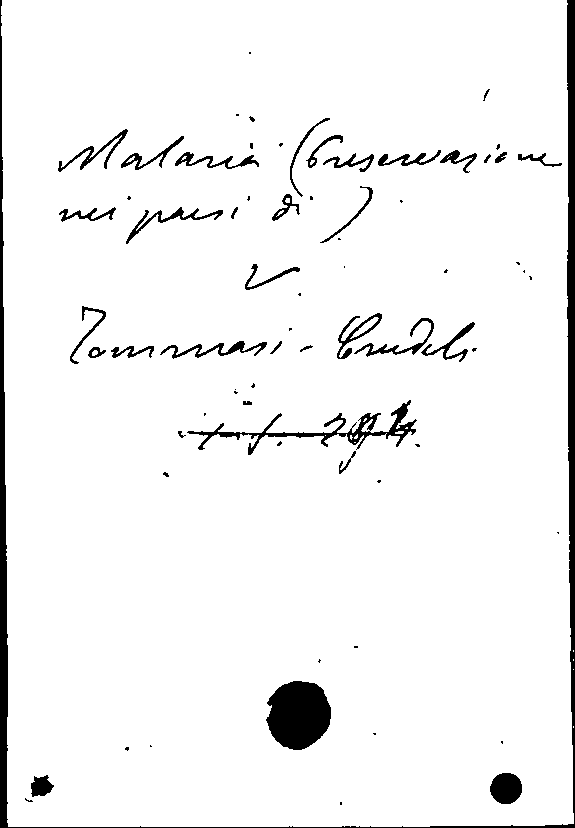 Malaria (Preservazione
nei paesi di)
V.
Tommasi-Crudeli